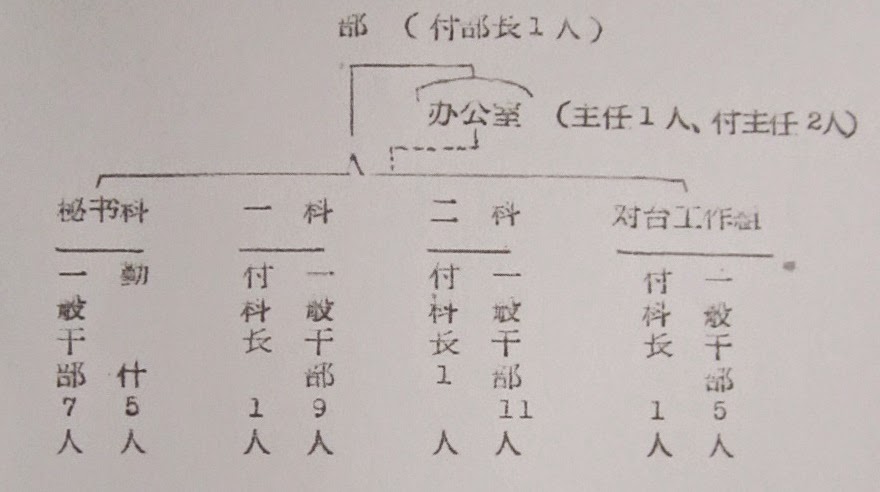 部 （付部长1人）
办公室 （主任1人、付主任2人）
秘书科 一科 二科 对台工作组
一般干部7人 勤什5人 付科长1人 一般干部9人 付科长1人 一般干部11人 付科长1人 一般干部5人